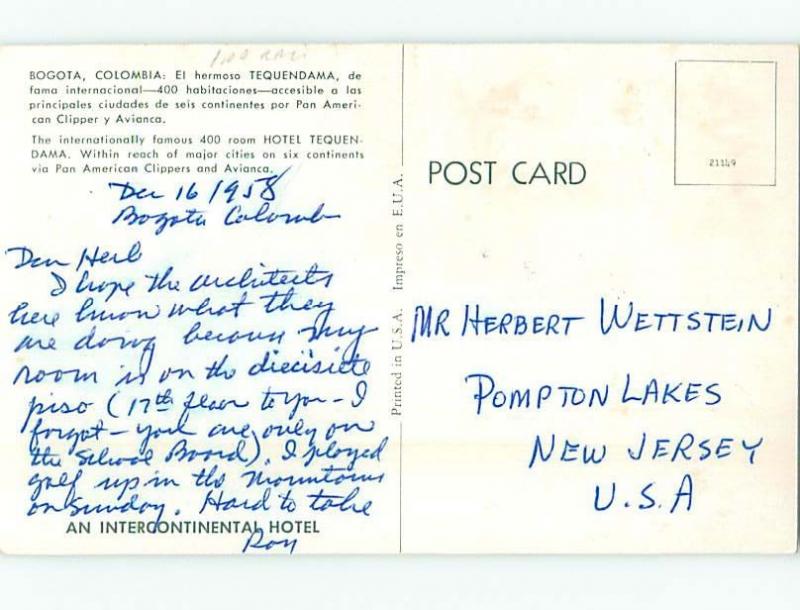 BOGOTA, COLOMBIA: El hermoso TEQUENDAMA, de
fama internacional—400 habitaciones—accesible a las
principales ciudades de seis continentes por Pan Ameri-
can Clipper y Avianca.
The internationally famous 400 room HOTEL TEQUEN-
DAMA. Within reach of major cities on six continents
via Pan American Clippers and Avianca.
Dec 16/1958
Bogota Colomb
Dear Herb
I hope the architects
here know what they
are doing because my
room is on the diecisiete
piso (17th floor to you - I
forgot - you are only on
the School Board). I played
golf up in the mountains
on Sunday. Hard to take
AN INTERCONTINENTAL HOTEL
Ray
Printed in U.S.A. Impreso en E.U.A.
POST CARD
21149
MR HERBERT WETTSTEIN
POMPTON LAKES
NEW JERSEY
U.S.A